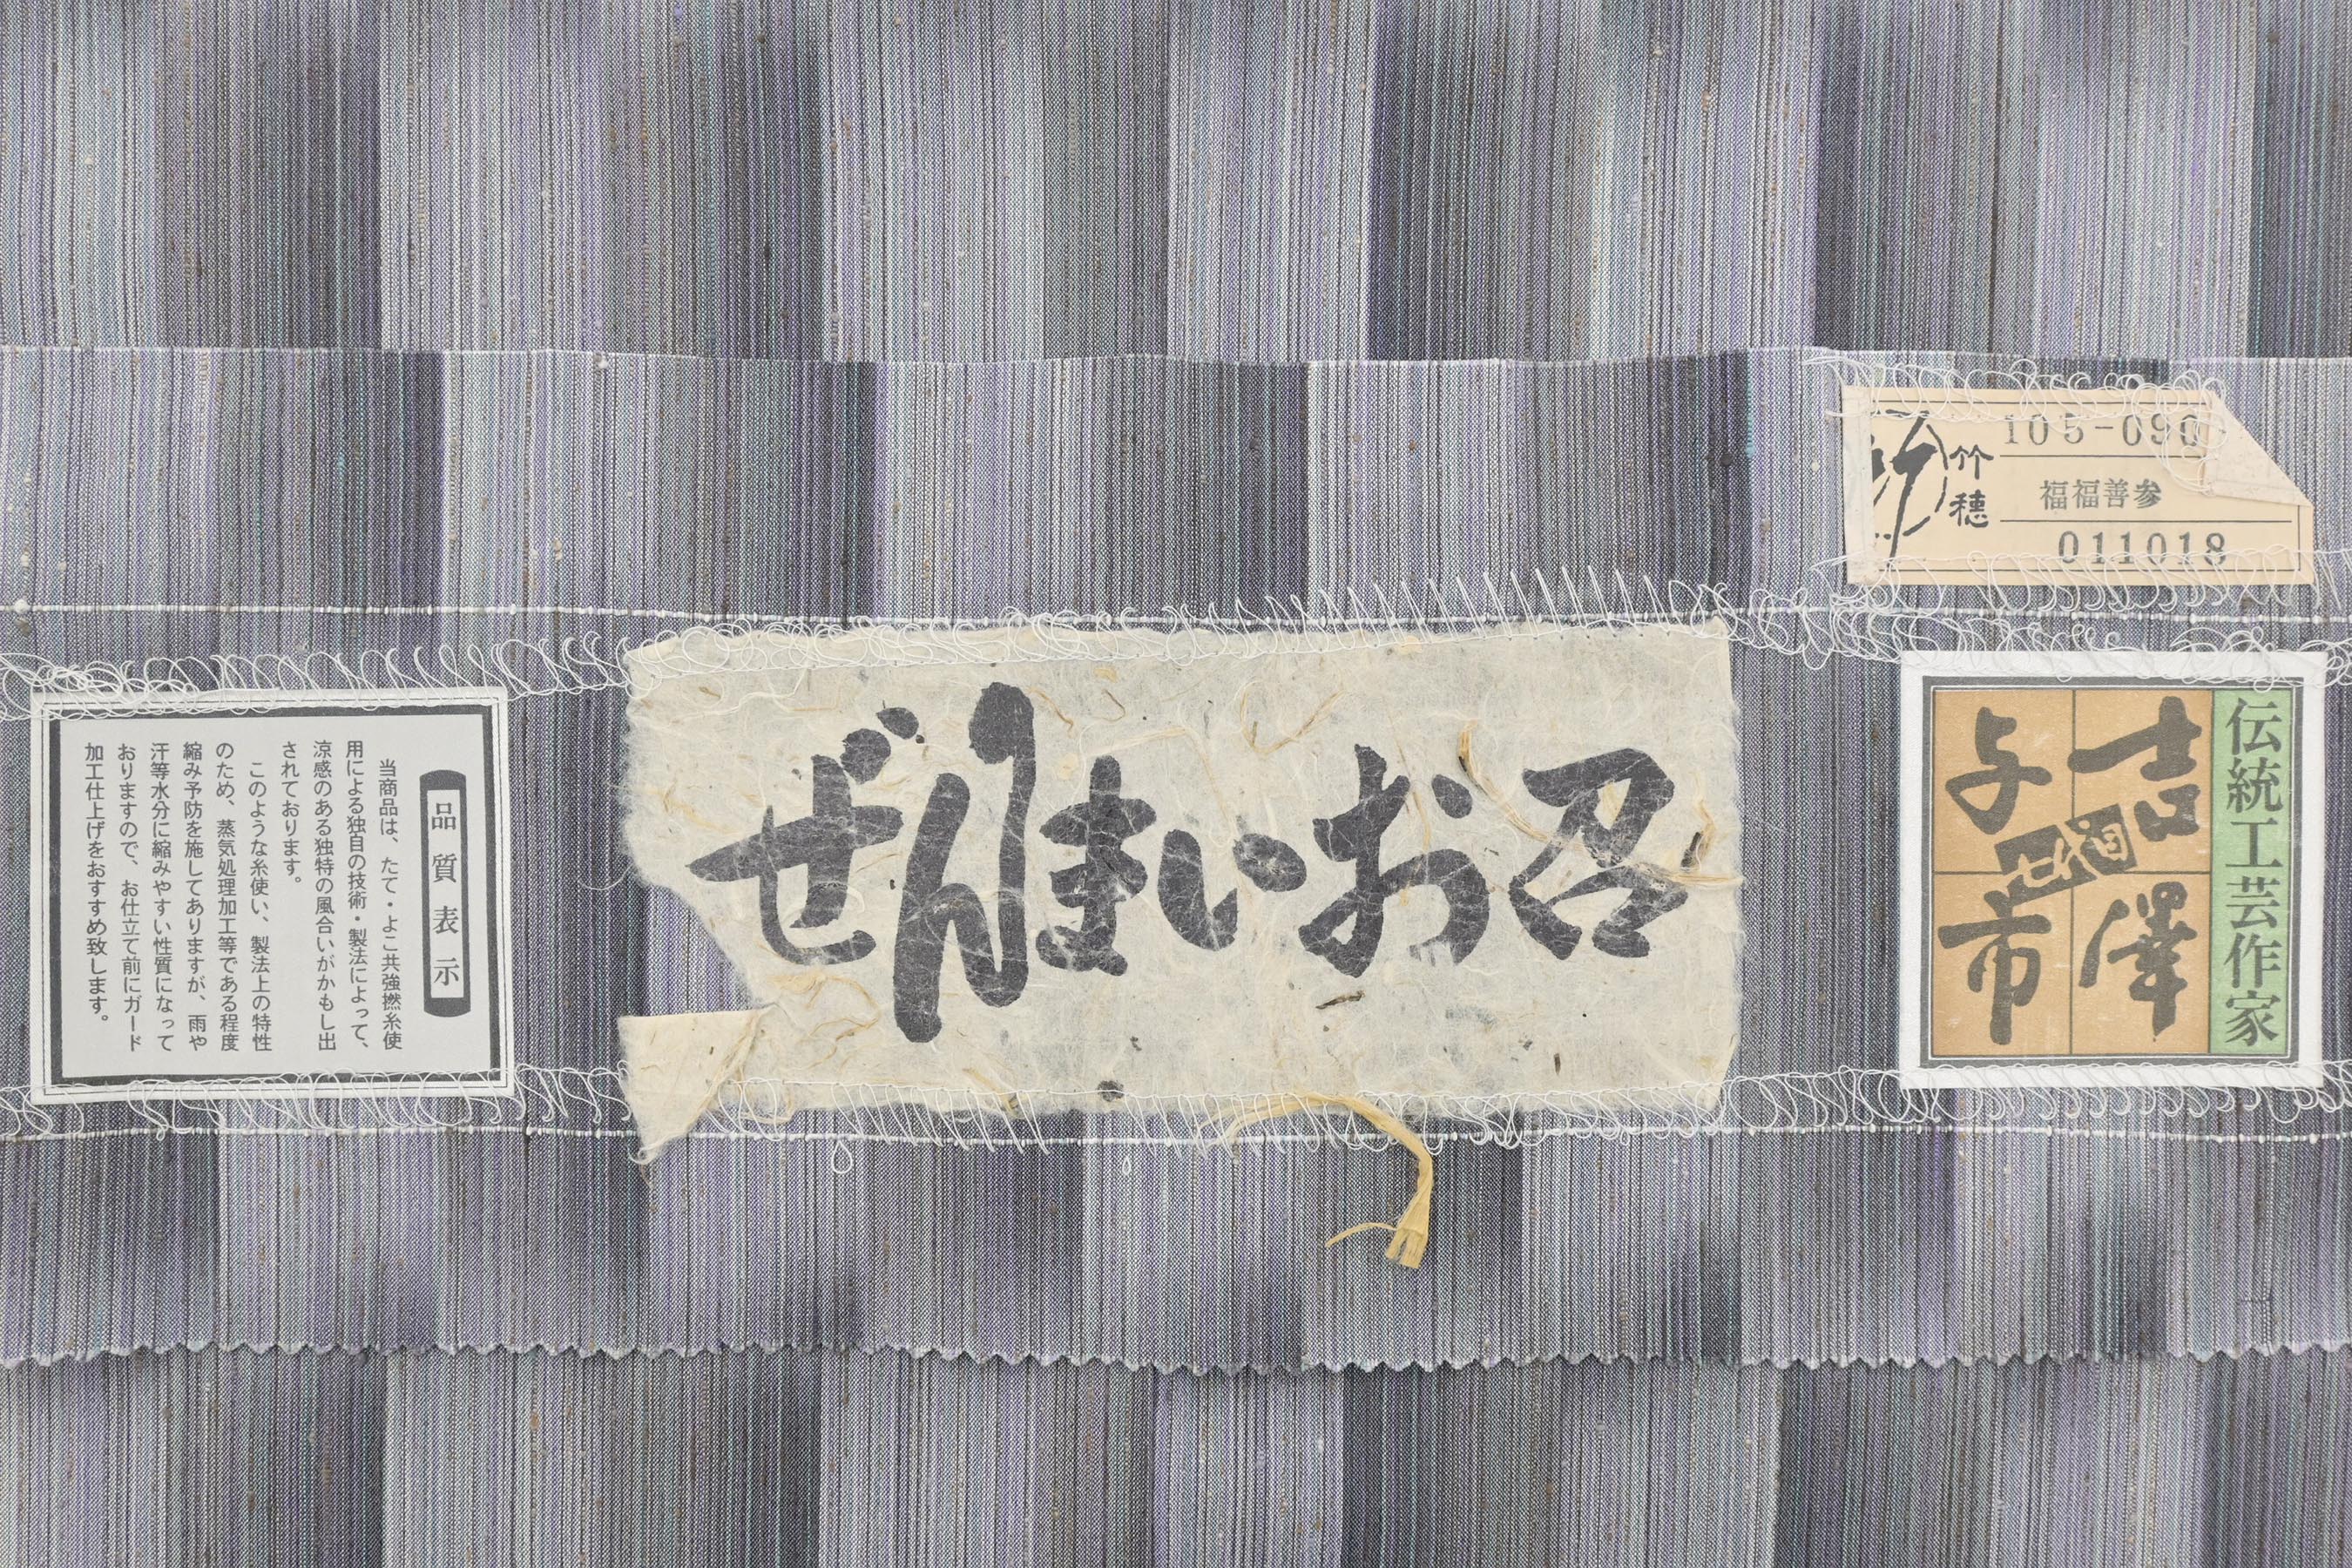 105-090
竹穂
福福善参
011018
ぜんまいお召
伝統工芸作家
吉澤
与市
品質表示
当商品は、たて・よこ共強撚糸使
用による独自の技術・製法によって、
涼感のある独特の風合いがかもし出
されております。
このような糸使い、製法上の特性
のため、蒸気処理加工等である程度
縮み予防を施してありますが、雨や
汗等水分に縮みやすい性質になって
おりますので、お仕立て前にガード
加工仕上げをおすすめ致します。